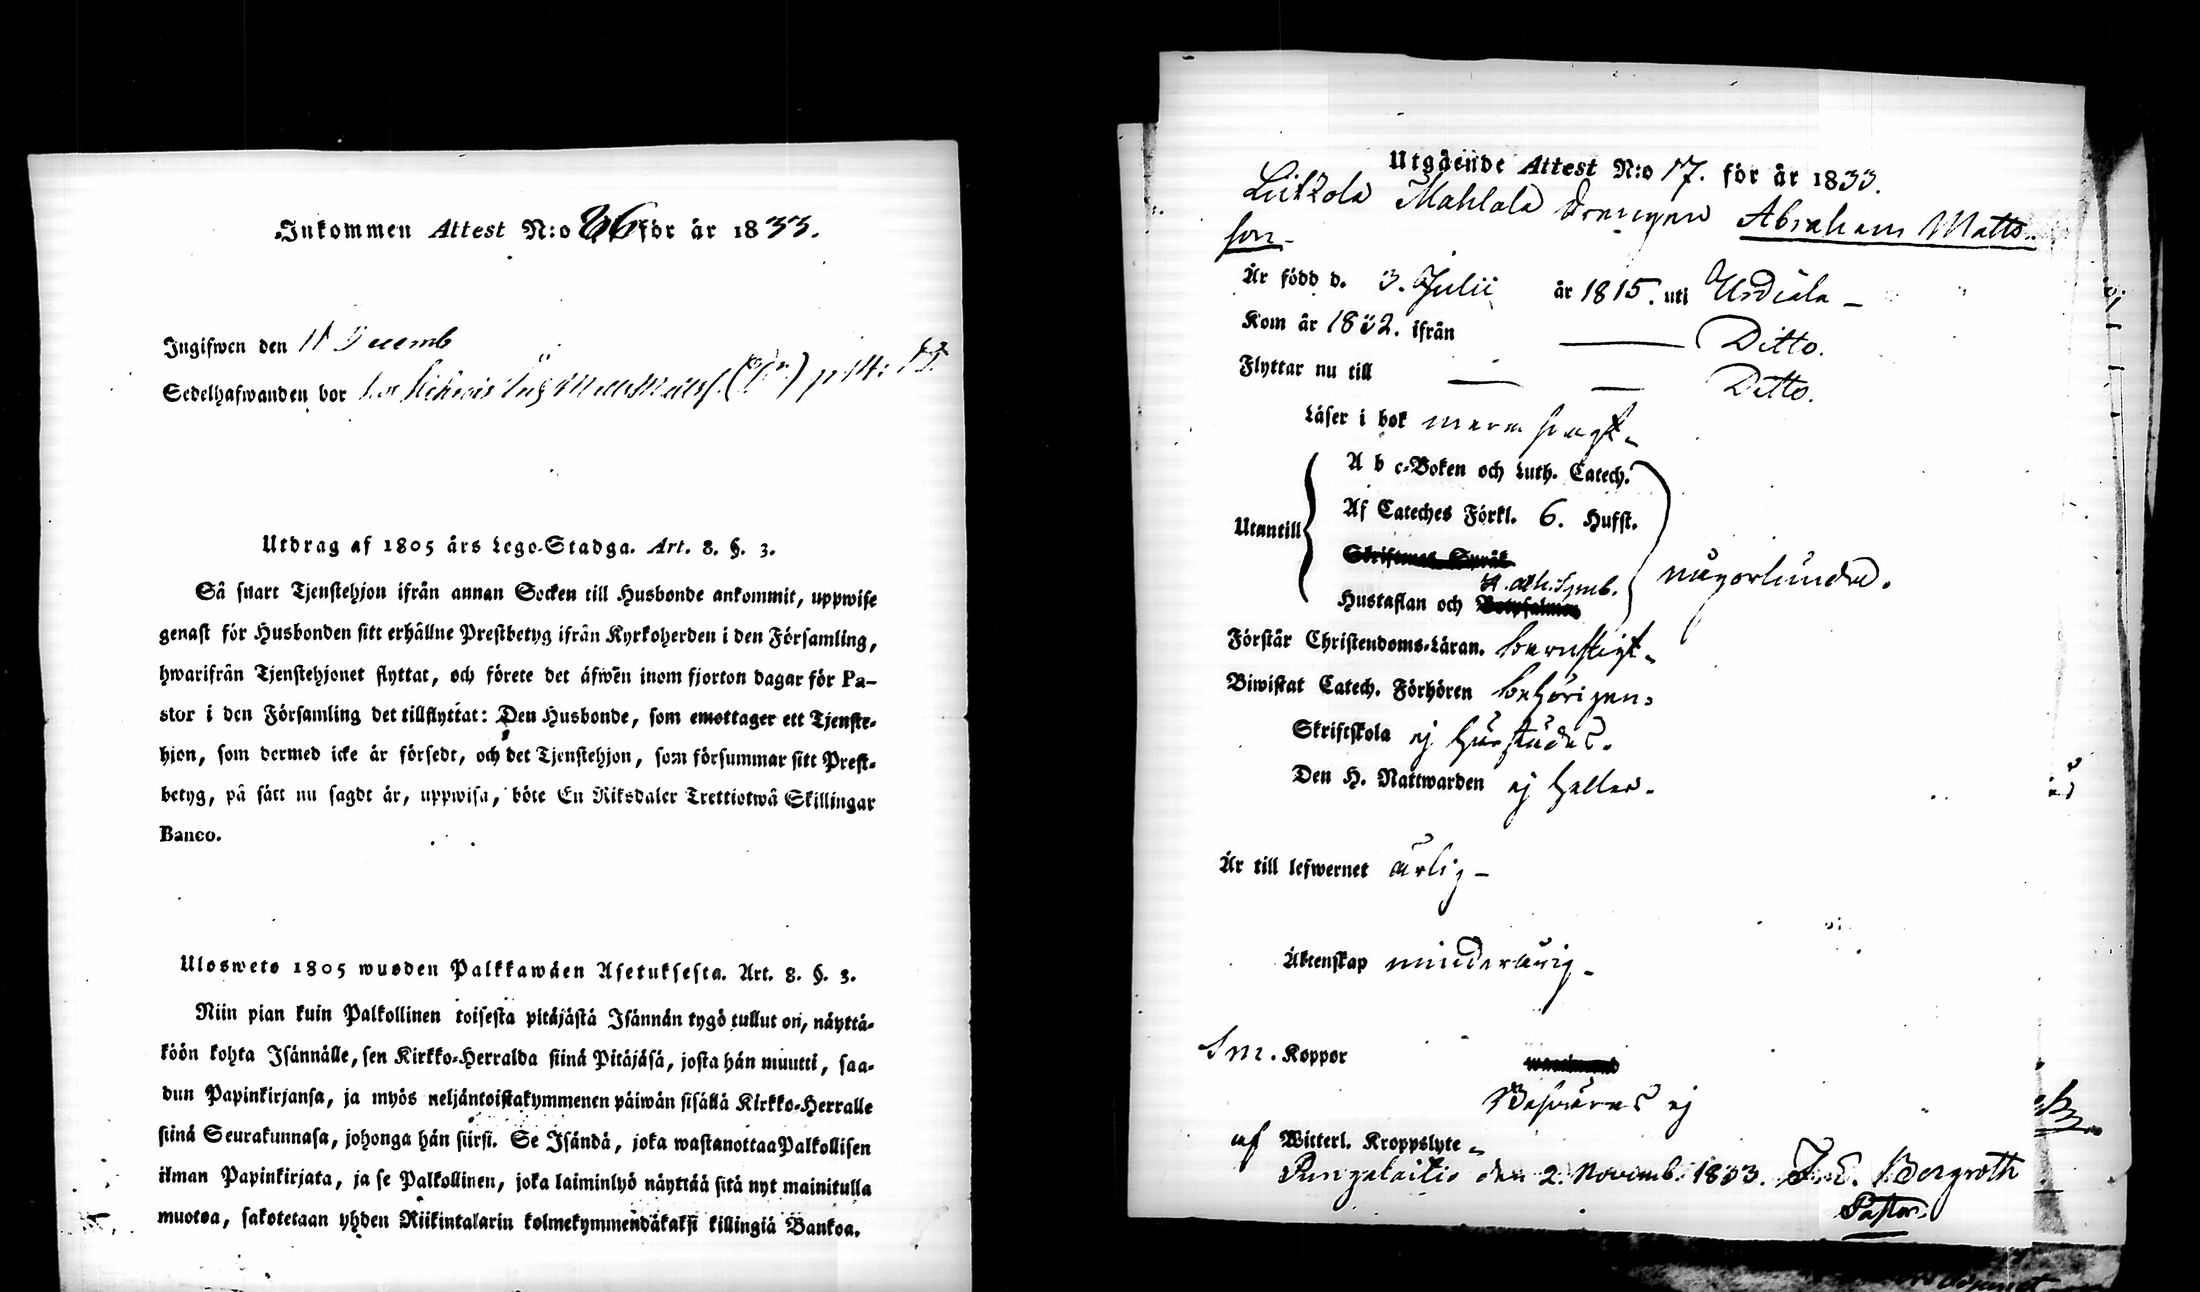 Inkommen Attest N:o 86 för år 1833.
Ingifwen den 11 Decemb
Sedelhafwanden bor
Utdrag af 1805 års Lego-Stadga. Art. 8. §. 3.
Så snart Tjenstehjon ifrån annan Socken till Husbonde ankommit, uppwise
genast för Husbonden sitt erhållne Prestbetyg ifrån Kyrkoherden i den Församling,
hwarifrån Tjenstehjonet flyttat, och förete det äfwen inom fjorton dagar för Pa-
stor i den Församling det tillflyttat: Den Husbonde, som emottager ett Tjenste-
hjon, som dermed icke är försedt, och det Tjenstehjon, som försummar sitt Prest-
betyg, på sätt nu sagdt är, uppwisa, böte En Riksdaler Trettiotwå Skillingar
Banco.
Uloswets 1805 wuoden Palkkawäen Asetuksesta. Art. 8. §. 3.
Niin pian kuin Palkollinen toisesta pitäjästä Isännän tygö tullut on, näyttä-
köön kohta Isännälle, sen Kirkko-Herralda siinä Pitäjäsä, josta hän muutti, saa-
dun Papinkirjansa, ja myös neljäntoistakymmenen päiwän sisällä Kirkko-Herralle
siinä Seurakunnasa, johonga hän siirsi. Se Isändä, joka wastanottaa Palkollisen
ilman Papinkirjata, ja se Palkollinen, joka laiminlyö näyttää sitä nyt mainitulla
muotoa, sakotetaan yhden Riikintalarin kolmekymmendäkaksi killingiä Bankoa.
Utgående Attest N:o 17. för år 1833.
Liikkola Mahlala Drengen Abraham Matts-
son
Är född d. 3. Julii år 1815. uti Urdiala
Kom år 1832. ifrån Ditto.
Flyttar nu till Ditto.
Läser i bok
A b c-Boken och Luth. Catech.
Af Cateches Förkl. 6. Hufst.
Utantill
Skriftenes Språk
A. ath. Symb.
Hustaflan och Botpsalmer
någorlunda.
Förstår Christendoms-Läran.
Biwistat Catech. Förhören behörigen.
Skriftskola ej
Den H. Nattwarden ej heller.
Är till lefwernet ärlig
Äktenskap minderårig
Koppor
Besväras ej
af Witterl. Kroppslyte
Pungalaitio den 2. Novemb. 1833. J. E. Bergroth
Pastor.